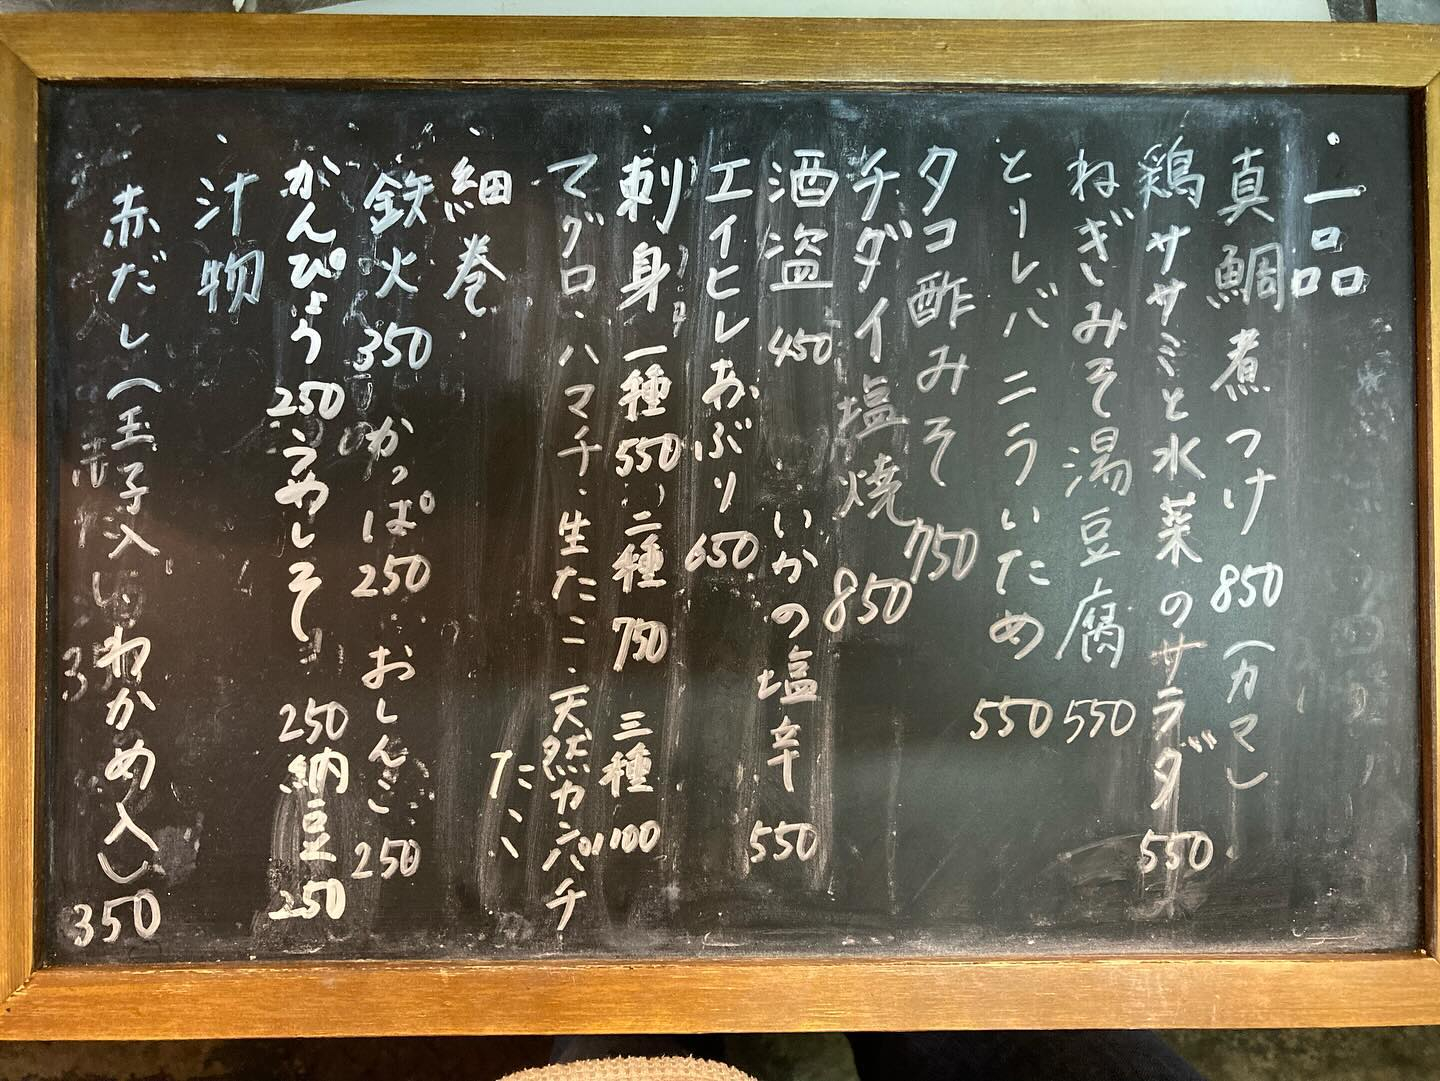 ・一品
真鯛煮つけ 850（カマ）
鶏ササミと水菜のサラダ 550
ねぎみそ湯豆腐 550
とりレバニラいため 550
タコ酢みそ 750
チダイ塩焼 850
酒盗 450 いかの塩辛 550
エイヒレあぶり 650
・刺身 一種 550 二種 750 三種 1100
マグロ・ハマチ・生たこ・天然カンパチ
たこ
・細巻
鉄火 350 かっぱ 250 おしんこ 250
かんぴょう 250 うめしそ 250 納豆 250
・汁物
赤だし（玉子入り わかめ入り） 350